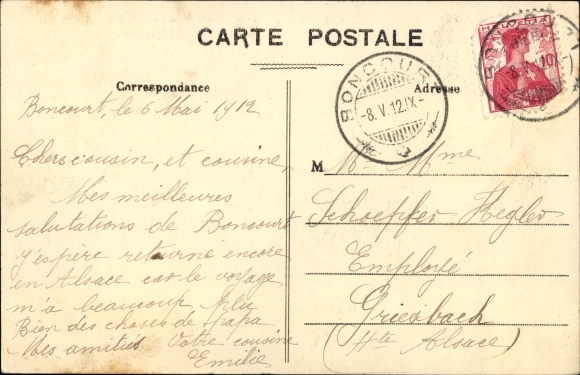 CARTE POSTALE
Correspondance
Adresse
HELVETIA
BONCOURT
-8.V.12.IX-
BONCOURT
Boncourt, le 6 Mai 1912
Chers cousin, et cousine
Mes meilleures
salutations de Boncourt
j'espère retourne encore
en Alsace car le voyage
m'a beaucoup plu
Bien des choses de papa
Mes amitiés Votre cousine
Emilie
M
Mr Mme
Schoepfer Hegler
Employé
Griesbach
(Hte Alsace)